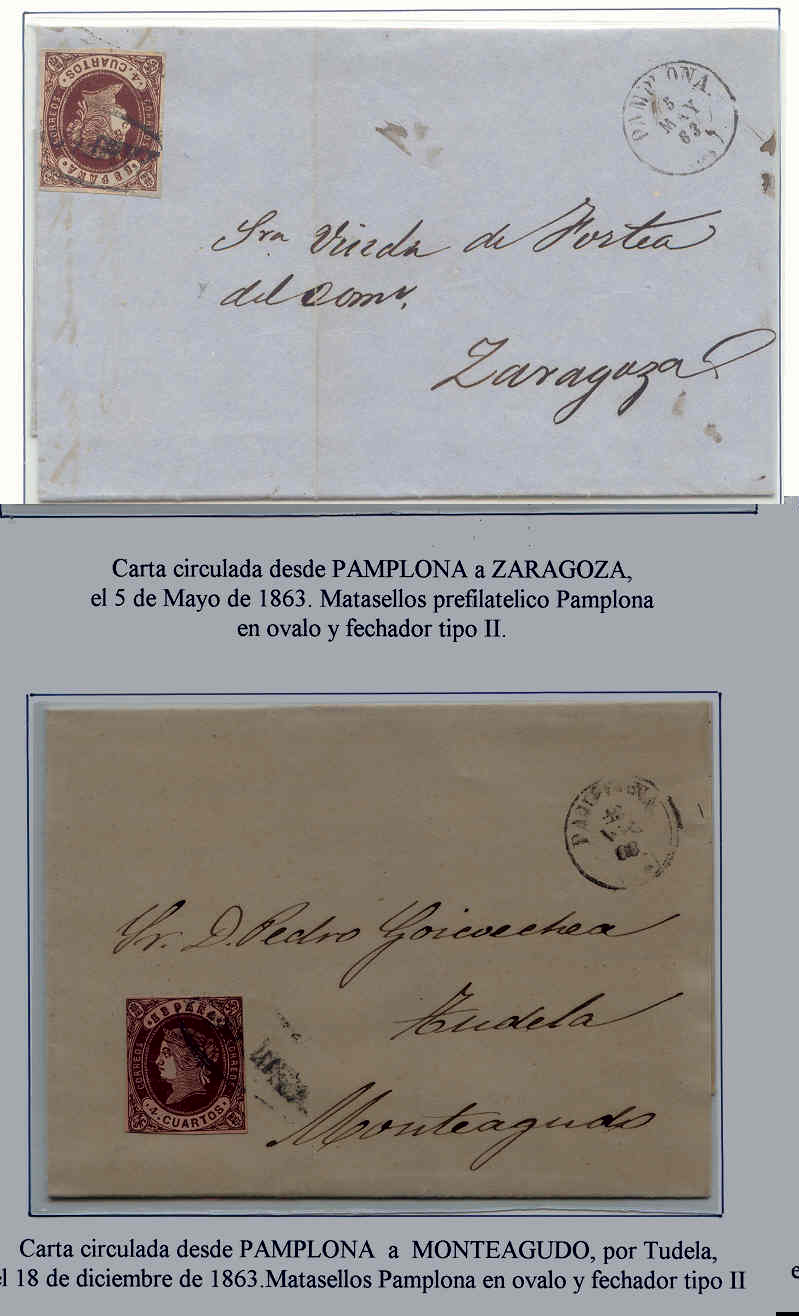 4 CUARTOS
CORREOS
CORREOS
ESPAÑA
PAMPLONA.
5
MAY
63
Sra Viuda de Fortea
del Comº.
Zaragoza
Carta circulada desde PAMPLONA a ZARAGOZA,
el 5 de Mayo de 1863. Matasellos prefilatelico Pamplona
en ovalo y fechador tipo II.
PAMPLONA
Sr. D. Pedro Goicoechea
ESPAÑA
CORREOS
CORREOS
4 CUARTOS
Tudela
Monteagudo
Carta circulada desde PAMPLONA a MONTEAGUDO, por Tudela,
el 18 de diciembre de 1863.Matasellos Pamplona en ovalo y fechador tipo II
e